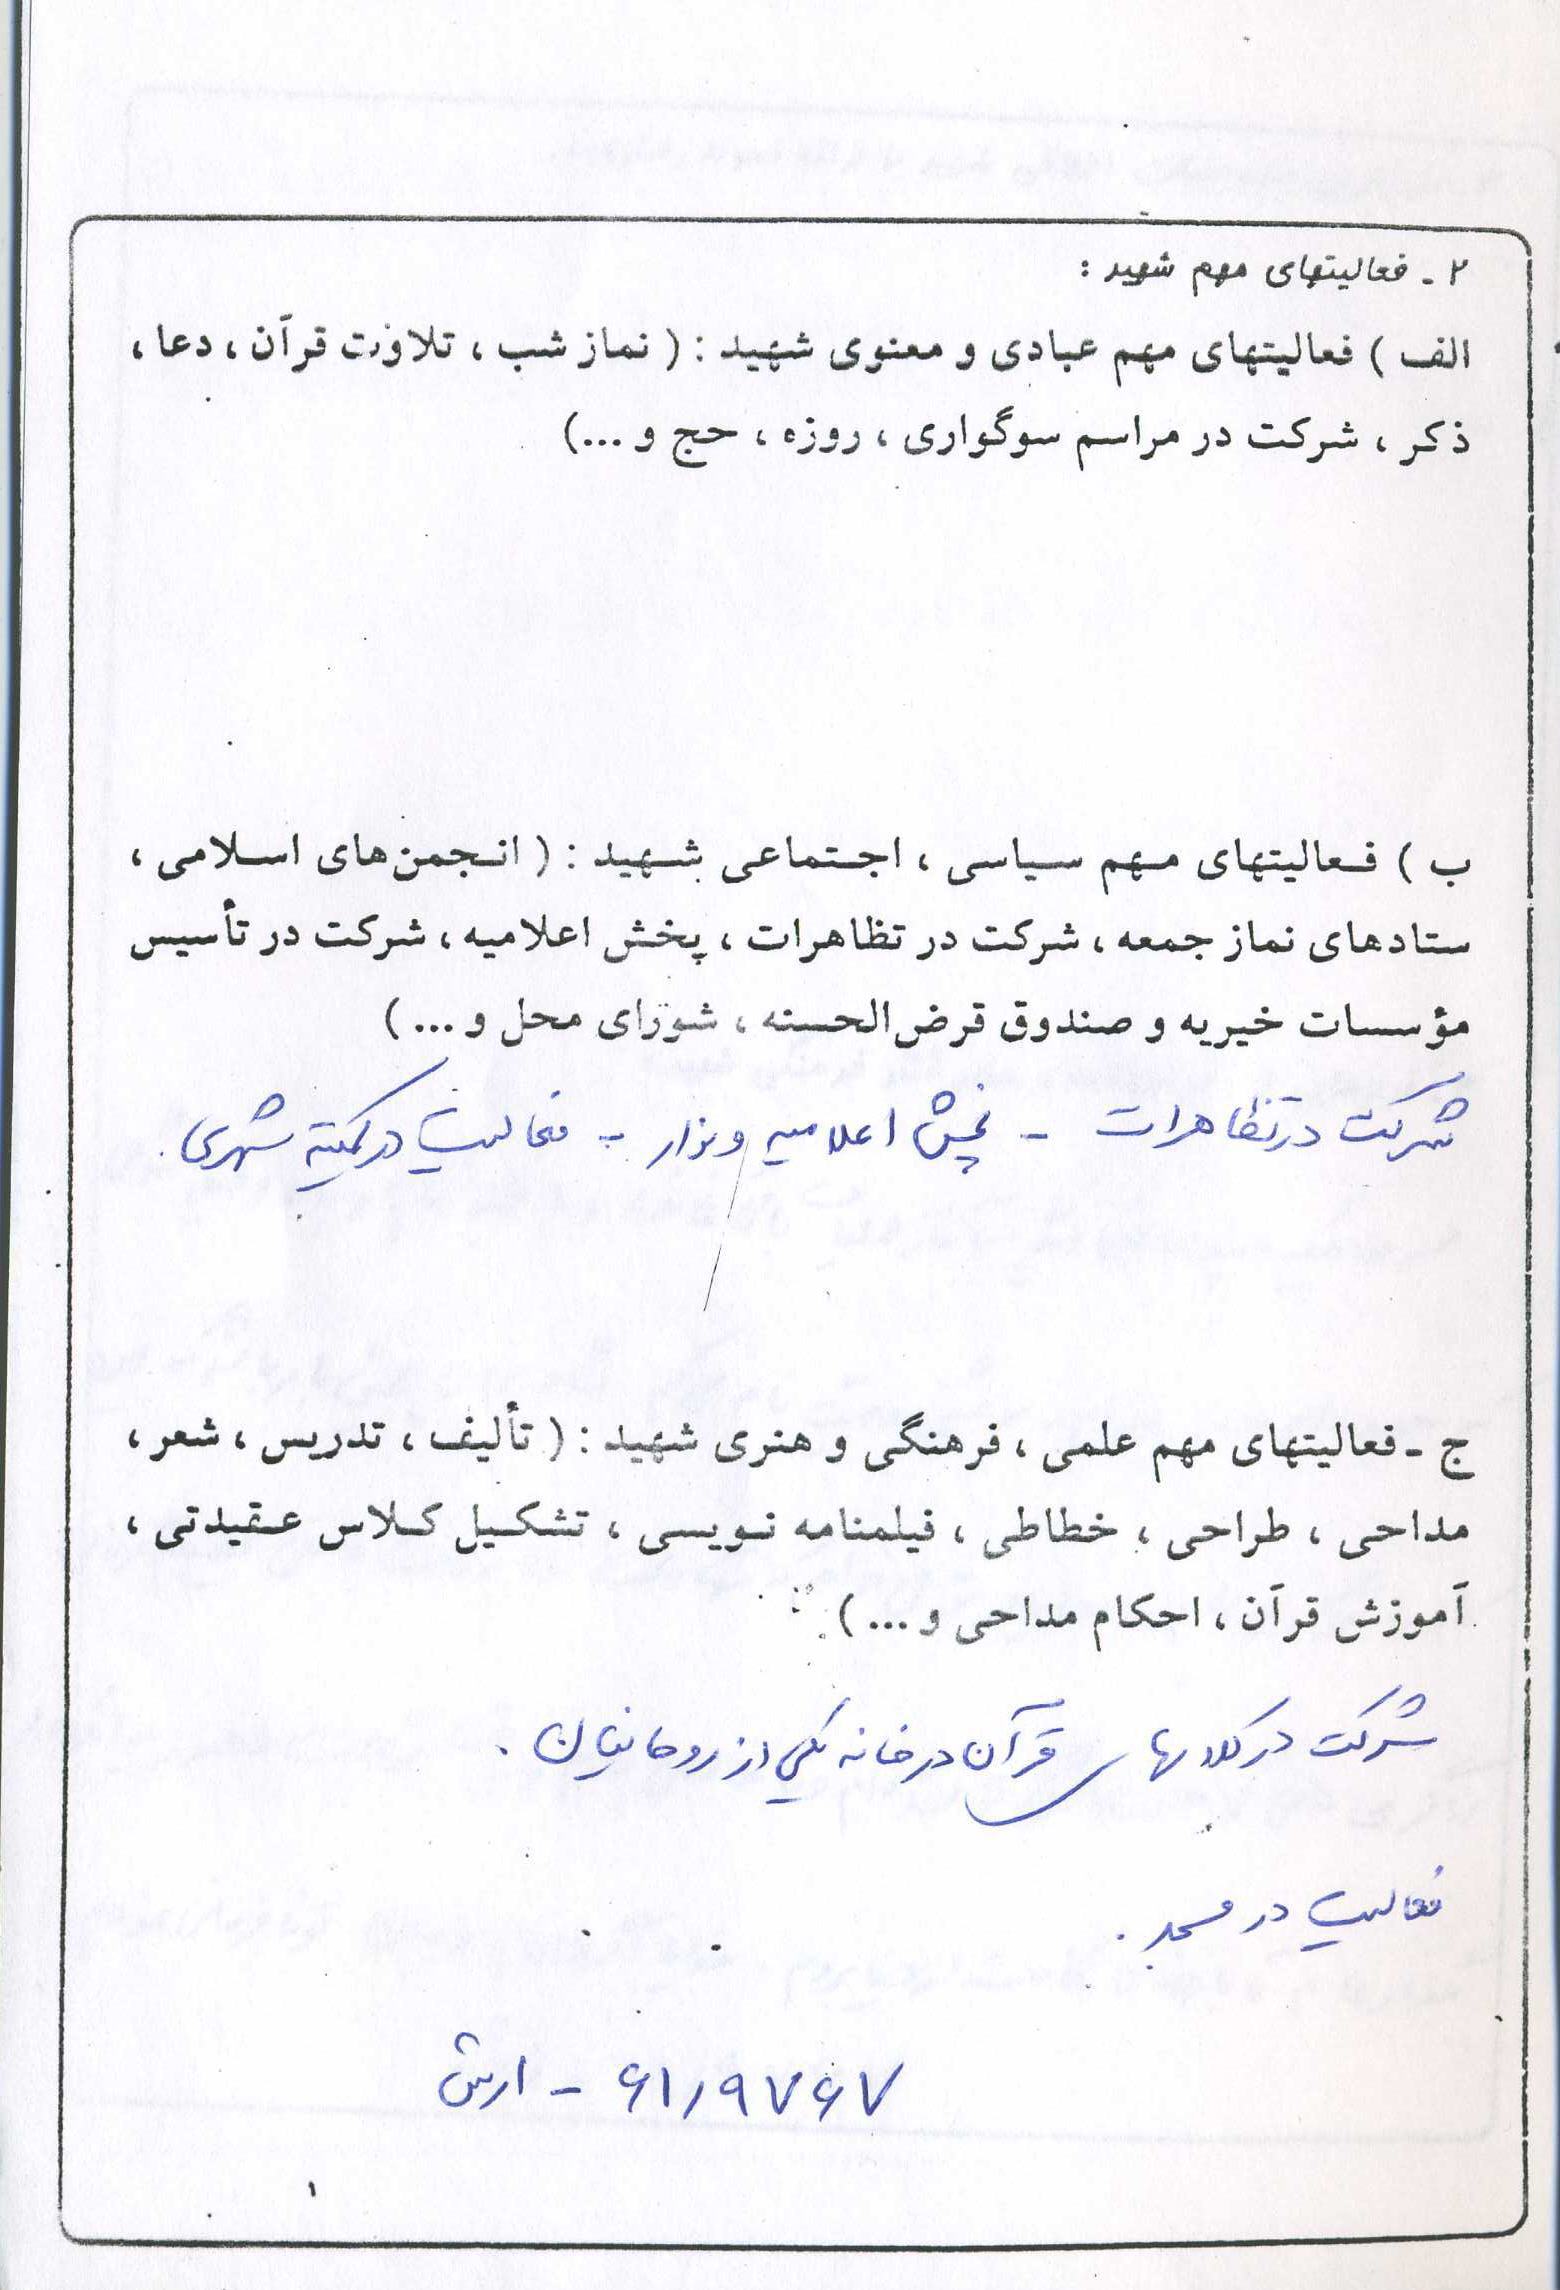 ۲ - فعالیتهای مهم شهید :
الف ) فعالیتهای مهم عبادی و معنوی شهید : ( نماز شب ، تلاوت قرآن ، دعا ،
ذکر ، شرکت در مراسم سوگواری ، روزه ، حج و ...)
ب ) فعالیتهای مهم سیاسی ، اجتماعی شهید : ( انجمن‌های اسلامی ،
ستادهای نماز جمعه ، شرکت در تظاهرات ، پخش اعلامیه ، شرکت در تأسیس
مؤسسات خیریه و صندوق قرض‌الحسنه ، شورای محل و ... )
شرکت در تظاهرات - پخش اعلامیه و نوار - فعالیت در کمیته شهری .
ج - فعالیتهای مهم علمی ، فرهنگی و هنری شهید : ( تألیف ، تدریس ، شعر ،
مداحی ، طراحی ، خطاطی ، فیلمنامه نویسی ، تشکیل کلاس عقیدتی ،
آموزش قرآن ، احکام مداحی و ... )
شرکت در کلاسهای قرآن در خانه یکی از روحانیان .
فعالیت در مسجد .
۶۱۱۹۷۶۷ - ارتش